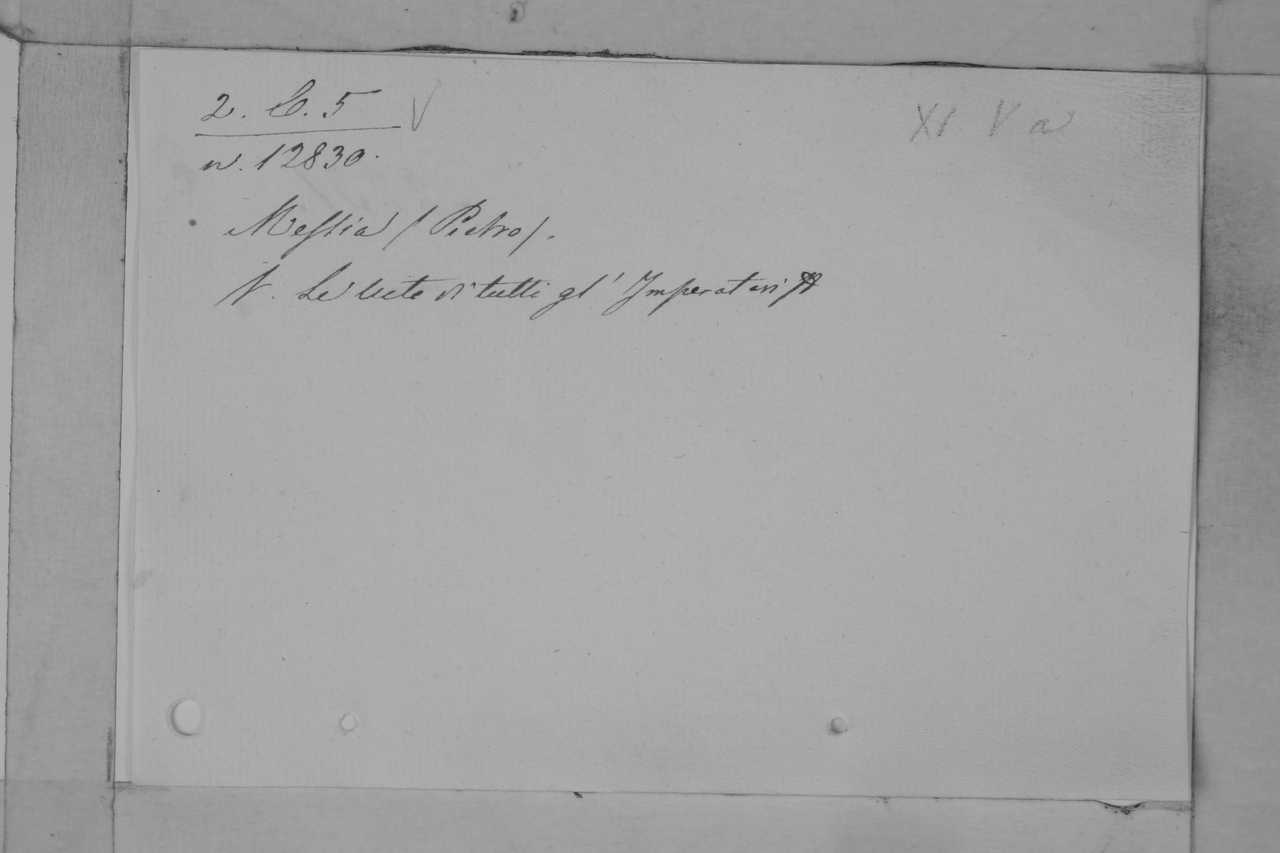 2. C. 5 V
XI V a
n. 12830.
Messia (Pietro).
V. Le uite di tutti gl' Imperatori